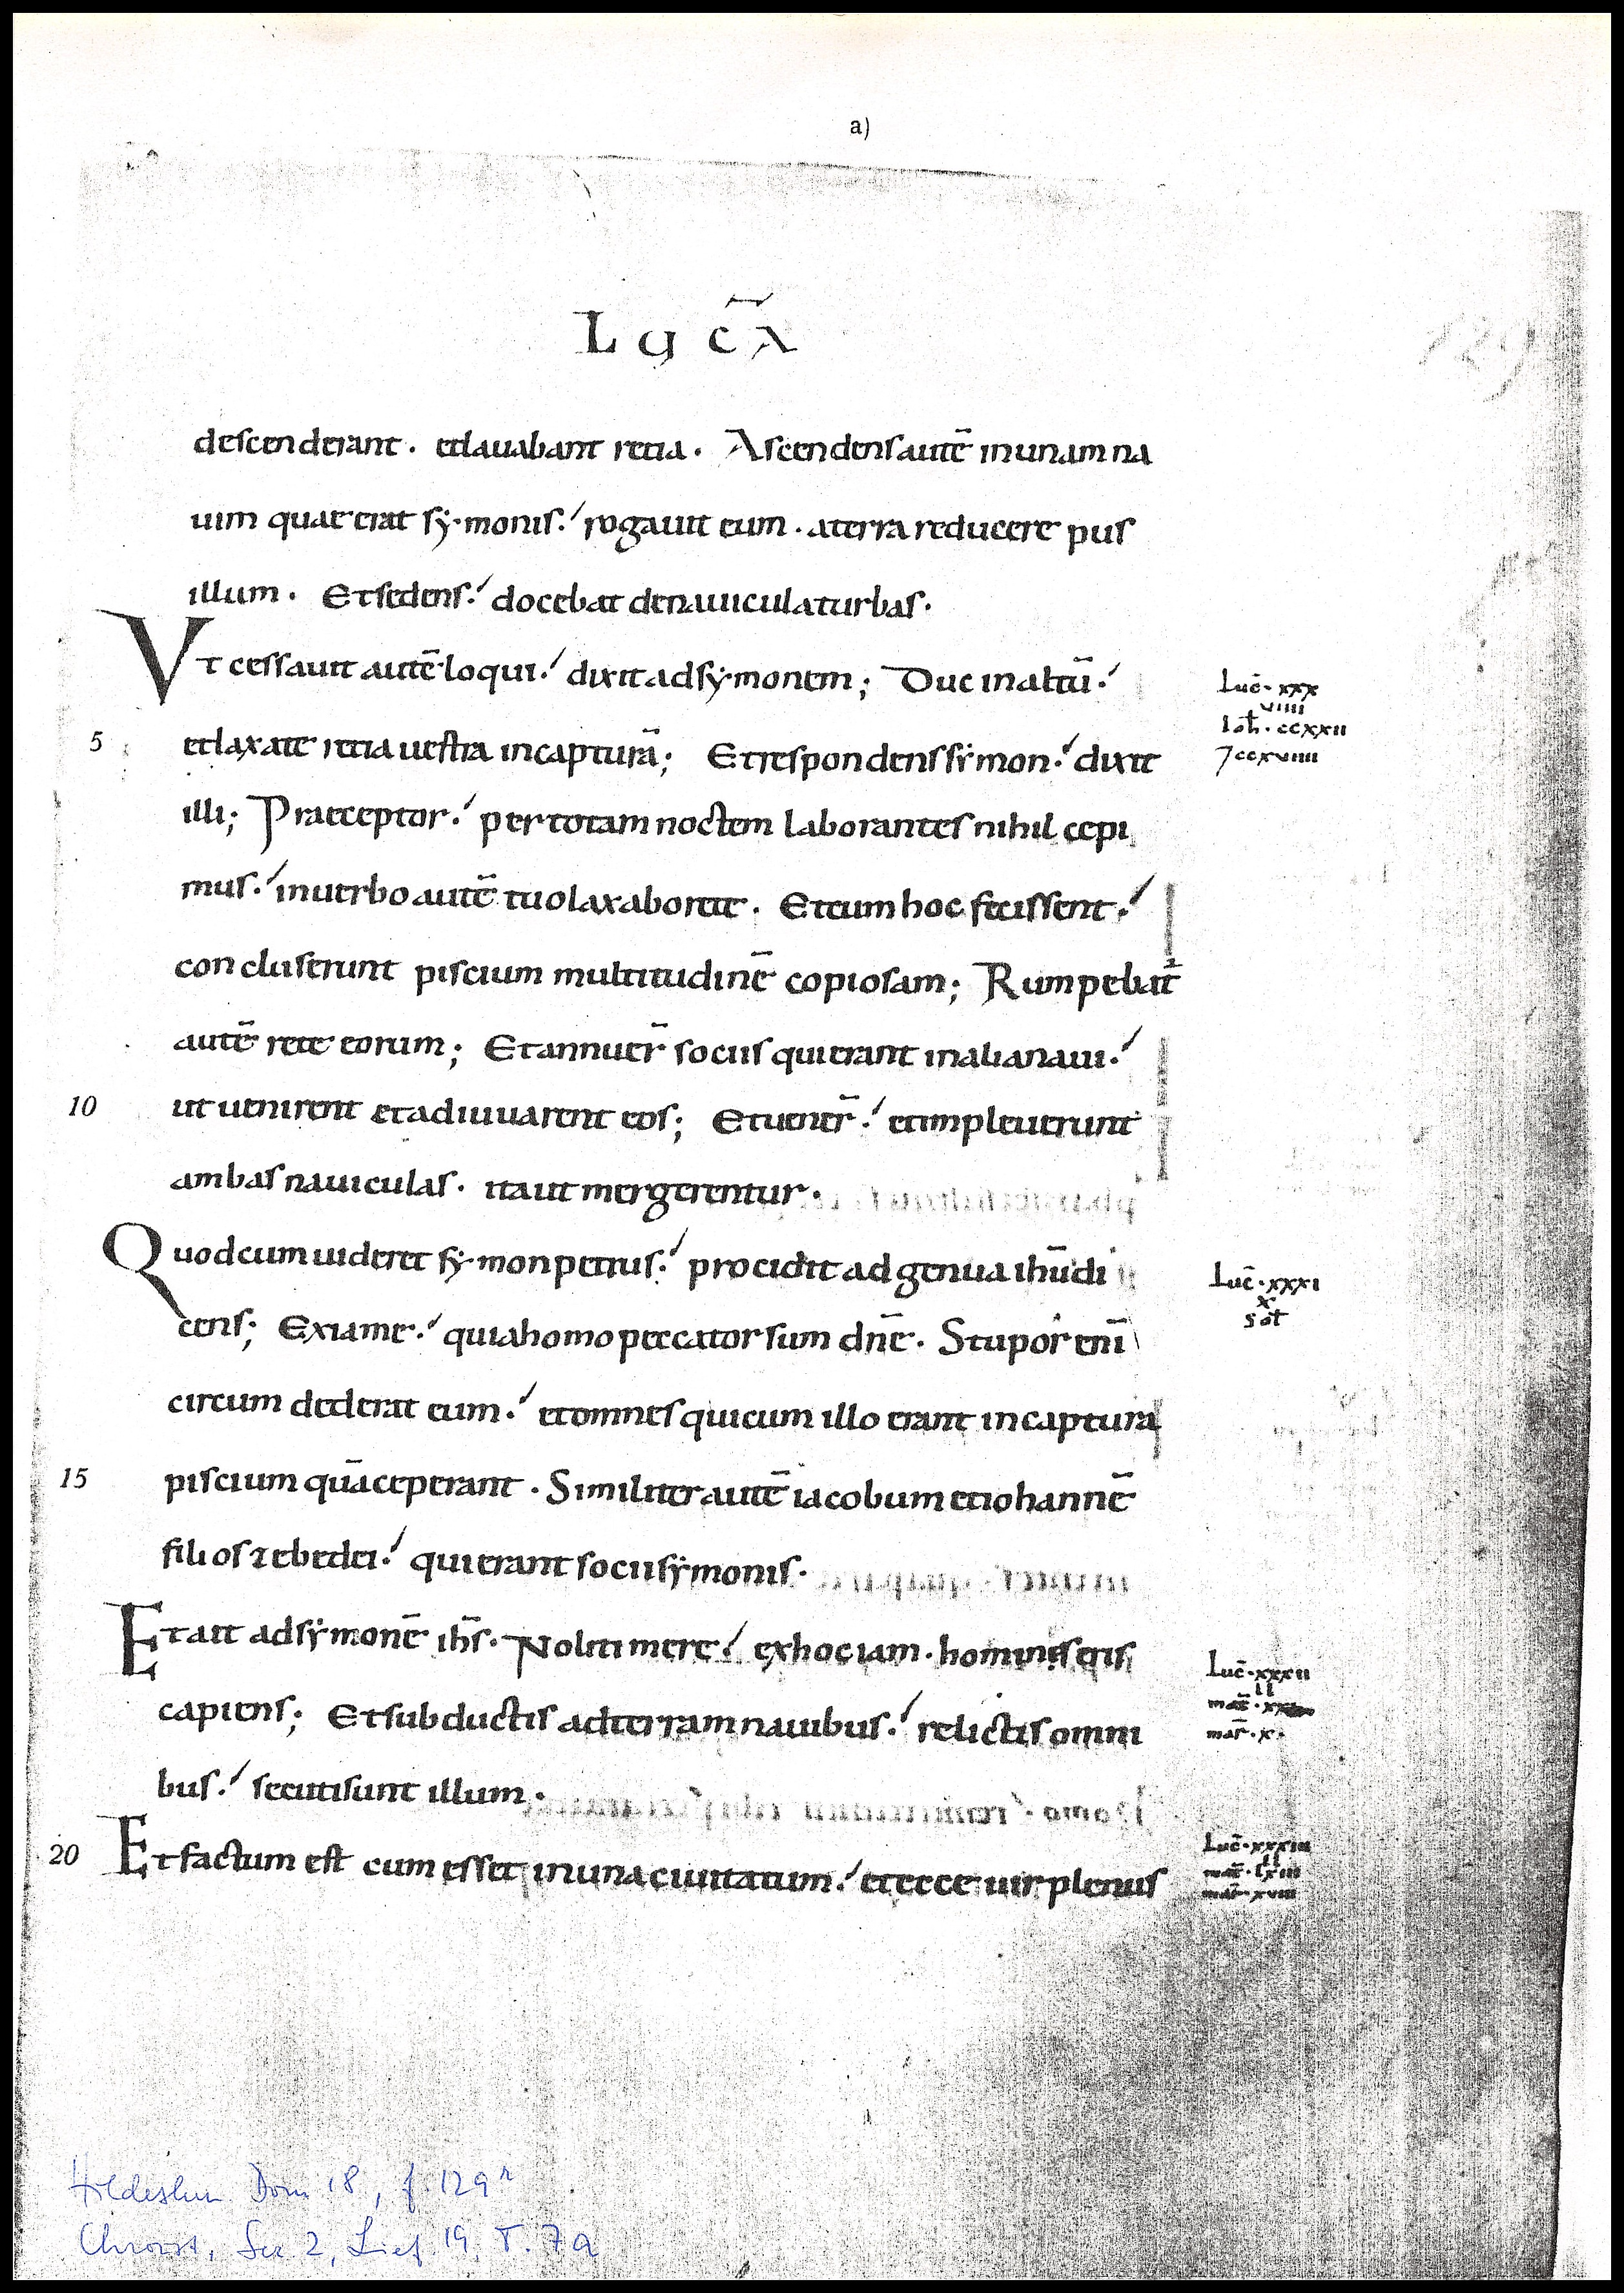 a)
LUC̄A
129
descenderant. etlauabant retia. Ascendensautē inunamna
uim quae erat sẏmonis. rogauit eum. aterra reducere pus
illum. Etsedens. docebat denauiculaturbas.
Vt cessauit autē loqui. dixit adsẏmonem; Duc inaltū.
Luc̄. xxx
viiii
Ioh̄. ccxxii
5
etlaxate retia uestra incapturā; Etrespondens sẏmon. dixit
⁊ccxviiii
illi; Praeceptor. pertotam noctem laborantes nihil cepi
mus. inuerbo autē tuolaxaborete. Etcum hoc fecissent.
concluserunt piscium multitudinē copiosam; Rumpebat̄
autē rete eorum; Etannuer̄ sociis quierant inalianaui.
10
ut uenirent etadiuuarent eos; Etuener̄. etimpleuerunt
ambas nauiculas. itaut mergerentur.
Quodcum uideret sẏmonpetrus. procidit ad genua ih̄udi
Luc̄. xxxi
x
sol̄
cens; Exiame. quiahomo peccator sum dn̄e. Stupor enī
circum dederat eum. etomnes quicum illo erant incaptura
15
piscium quāceperant. Similiterautē iacobum etiohannē
filios zebedei. quierant sociisẏmonis.
Etait adsẏmonē ih̄s. Nolitimere. exhociam. hominiseris
Luc̄. xxxii
ii
capiens; Etsubductis adterram nauibus. relictisomni
mar̄. x.
bus. secutisunt illum.
20
Etfactum est cum esset inunaciuitatum. etecce uir plenus
Luc̄. xxxiii
ii
mat̄. lxiii
mar̄. xviii
Hildesheim Dom 18, f. 129r
Chroust, Ser 2, Lief. 19, T. 7a